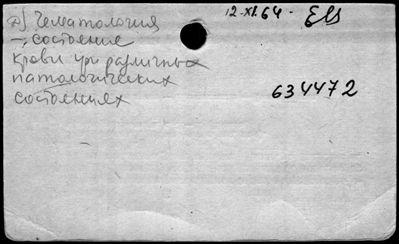 д) Гематология
12.XI.64. Els
–, состояние
крови при различных
патологических
состояниях
634472